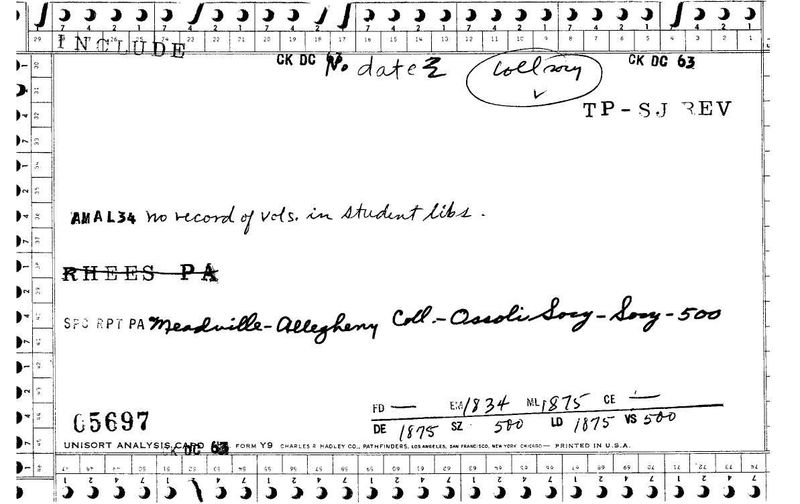 INCLUDE
CK DC 63 No date Coll socy CK DC 63
TP-SJ REV
AMAL34 no record of vols. in student libs.
RHEES PA
SPC RPT PA Meadville-Allegheny Coll.-Ossoli Socy-Socy-500
FD — EM 1834 ML 1875 CE —
05697 DE 1875 SZ 500 LD 1875 VS 500
UNISORT ANALYSIS CARD CK DC 63 FORM Y9 CHARLES R. HADLEY CO., PATHFINDERS, LOS ANGELES, SAN FRANCISCO, NEW YORK CHICAGO — PRINTED IN U.S.A.